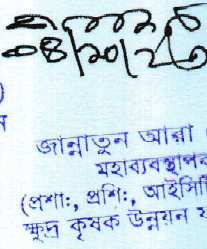 ০৪/১০/২৩
জান্নাতুন আরা
মহাব্যবস্থাপক
(প্রশাঃ, প্রশিঃ, আইসিটি
ক্ষুদ্র কৃষক উন্নয়ন